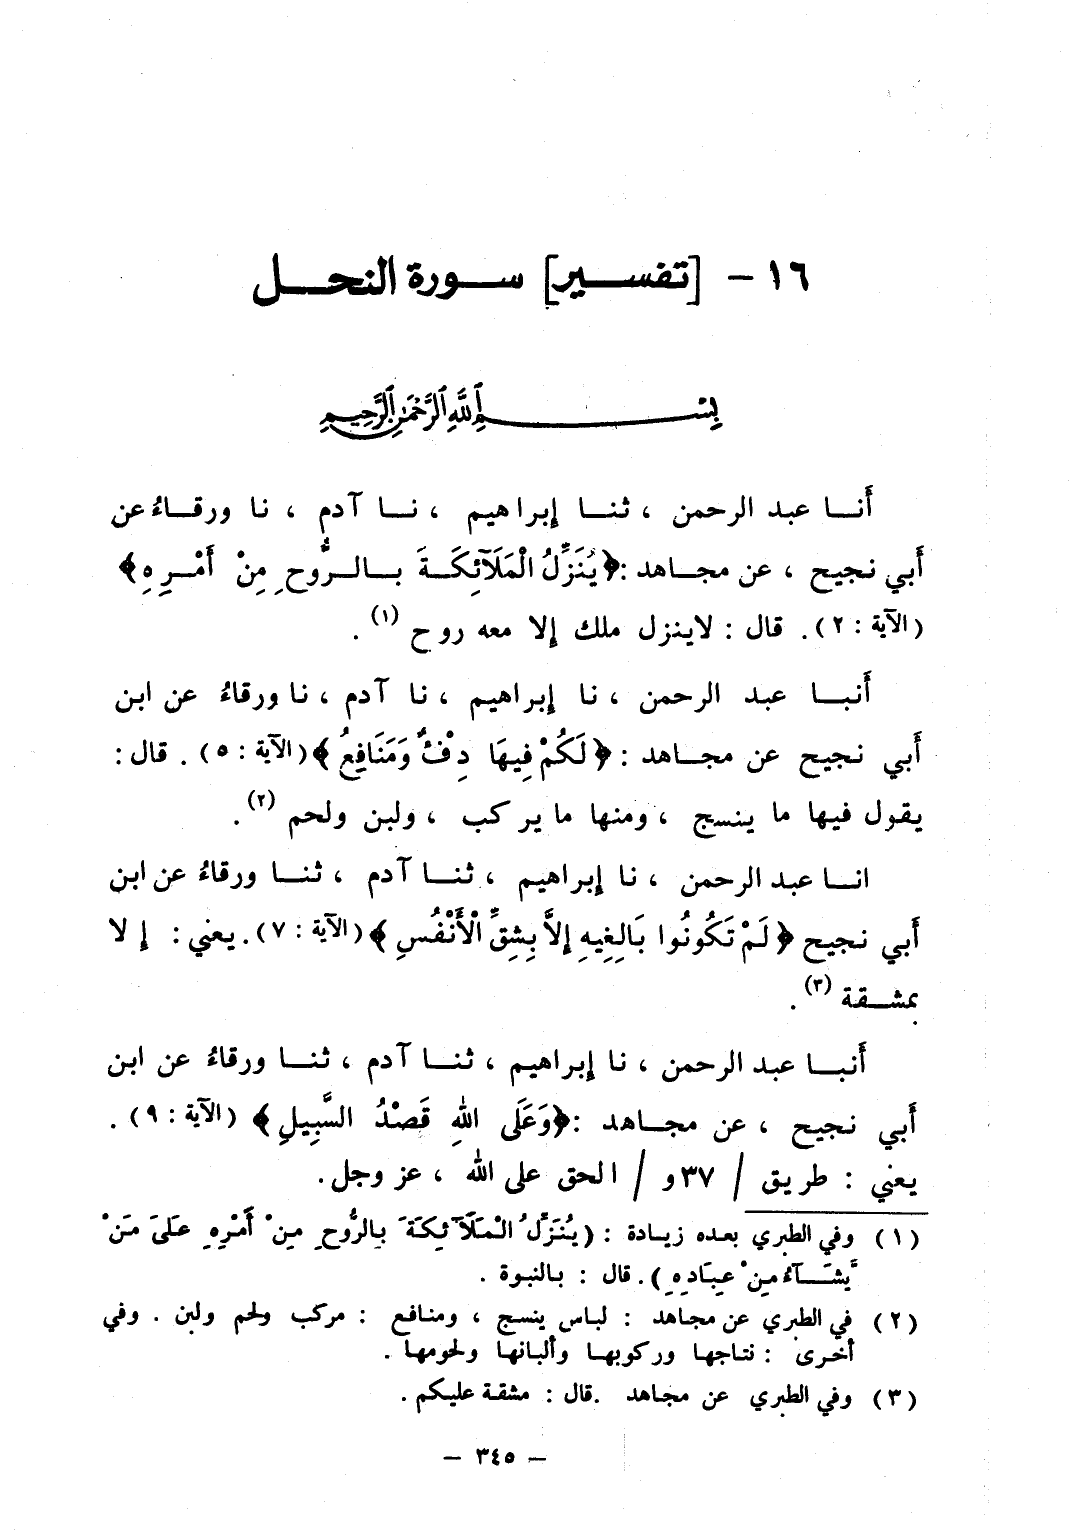 ١٦ - [تفسير] سورة النحل
بسم الله الرحمن الرحيم
أنا عبد الرحمن ، ثنا إبراهيم ، نا آدم ، نا ورقاءُ عن
أبي نجيح ، عن مجاهد : ﴿يُنَزِّلُ الْمَلَآئِكَةَ بِالرُّوحِ مِنْ أَمْرِهِ﴾
(الآية : ٢). قال : لاينزل ملك إلا معه روح (١) .
أنبا عبد الرحمن ، نا إبراهيم ، نا آدم ، نا ورقاءُ عن ابن
أبي نجيح عن مجاهد : ﴿لَكُمْ فِيهَا دِفْءٌ وَمَنَافِعُ﴾ (الآية : ٥) . قال :
يقول فيها ما ينسج ، ومنها ما يركب ، ولبن ولحم (٢) .
انا عبد الرحمن ، نا إبراهيم ، ثنا آدم ، ثنا ورقاءُ عن ابن
أبي نجيح ﴿لَمْ تَكُونُوا بَالِغِيهِ إِلاَّ بِشِقِّ الْأَنْفُسِ﴾ (الآية : ٧). يعني : إلا
بمشقة (٣) .
أنبا عبد الرحمن ، نا إبراهيم ، ثنا آدم ، ثنا ورقاءُ عن ابن
أبي نجيح ، عن مجاهد : ﴿وَعَلَى اللهِ قَصْدُ السَّبِيلِ﴾ (الآية : ٩) .
يعني : طريق / ٣٧و / الحق على الله ، عز وجل .
(١) وفي الطبري بعده زيادة : (يُنَزِّلُ الْمَلَآئِكَةَ بِالرُّوحِ مِنْ أَمْرِهِ عَلَىَ مَنْ
يَشَآءُ مِنْ عِبَادِهِ). قال : بالنبوة .
(٢) في الطبري عن مجاهد : لباس ينسج ، ومنافع : مركب ولحم ولبن . وفي
أخرى : نتاجها وركوبها وألبانها ولحومها .
(٣) وفي الطبري عن مجاهد . قال : مشقة عليكم .
- ٣٤٥ -